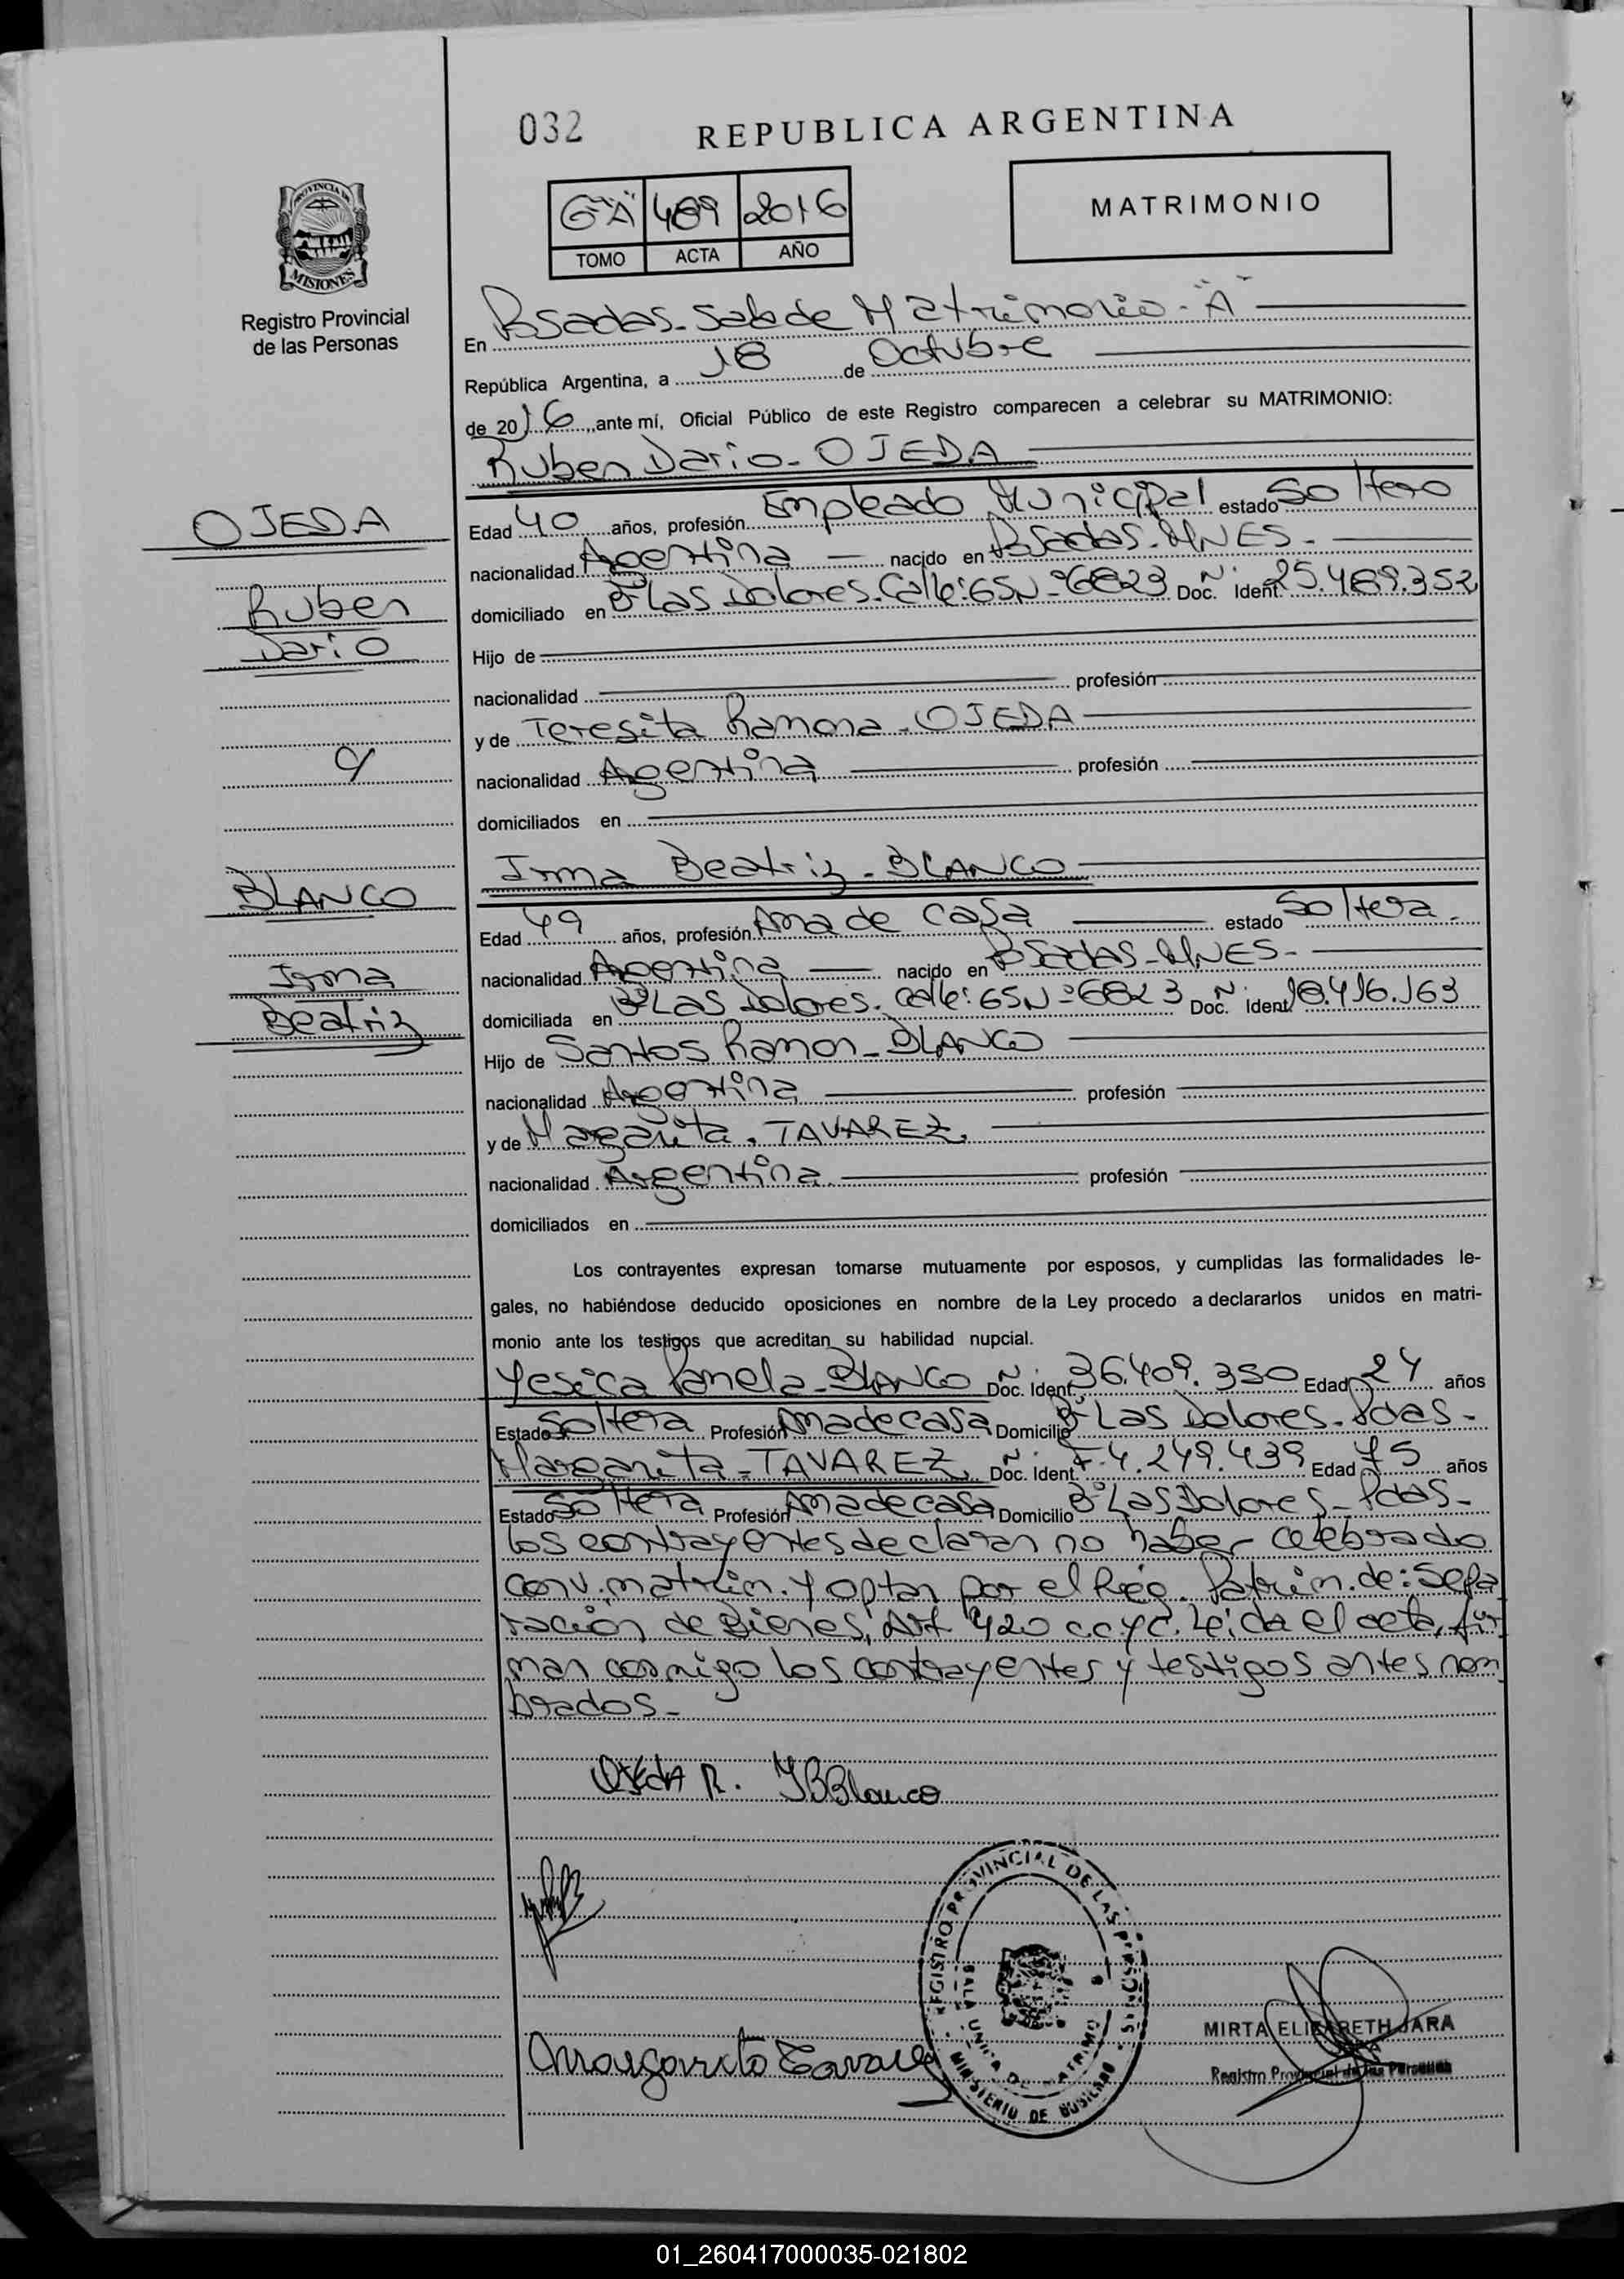 032
REPUBLICA ARGENTINA
6"A" 489 2016
TOMO ACTA AÑO
MATRIMONIO
PROVINCIA DE
MISIONES
Registro Provincial
de las Personas
En Posadas-Sala de Matrimonio-"A"
República Argentina, a 18 de Octubre
de 2016, ante mí, Oficial Público de este Registro comparecen a celebrar su MATRIMONIO:
Ruben Dario-OJEDA
OJEDA
Ruben
Dario
c/
BLANCO
Irma
Beatriz
Edad 40 años, profesión Empleado Municipal estado Soltero
nacionalidad Argentina nacido en Posadas-MNES-
domiciliado en B° Las Dolores. Calle: 65 N° 6823 Doc. Ident. 25.489.352
Hijo de
nacionalidad profesión
y de Teresita Ramona-OJEDA
nacionalidad Argentina profesión
domiciliados en
Irma Beatriz-BLANCO
Edad 49 años, profesión Ama de casa estado Soltera-
nacionalidad Argentina nacido en Posadas-MNES-
domiciliada en B° Las Dolores. Calle: 65 N° 6823 Doc. Ident. 18.416.163
Hijo de Santos Ramon-BLANCO
nacionalidad Argentina profesión
y de Margarita. TAVAREZ.
nacionalidad Argentina. profesión
domiciliados en
Los contrayentes expresan tomarse mutuamente por esposos, y cumplidas las formalidades le-
gales, no habiéndose deducido oposiciones en nombre de la Ley procedo a declararlos unidos en matri-
monio ante los testigos que acreditan su habilidad nupcial.
Yesica Pamela-BLANCO Doc. Ident. 36.409.350 Edad 24 años
Estado Soltera Profesión Ama de casa Domicilio B° Las Dolores-Pdas-
Margarita-TAVAREZ. Doc. Ident. F-4.249.439 Edad 75 años
Estado Soltera Profesión Ama de casa Domicilio B° Las Dolores-Pdas-
los contrayentes declaran no haber celebrado
conv. matrim. y optan por el Rég. Patrim. de: Sepa
ración de Bienes, Art 420 c.c y c. Leida el acta, fir
man conmigo los contrayentes y testigos antes nom
brados-
OJEDA R. IBBlanco
REGISTRO PROVINCIAL DE LAS PERSONAS
SALA UNICA DE MATRIMO
MINISTERIO DE GOBIERNO
Margarita Tavarez
MIRTA ELIZABETH JARA
Registro Provincial de las Personas
01_260417000035-021802